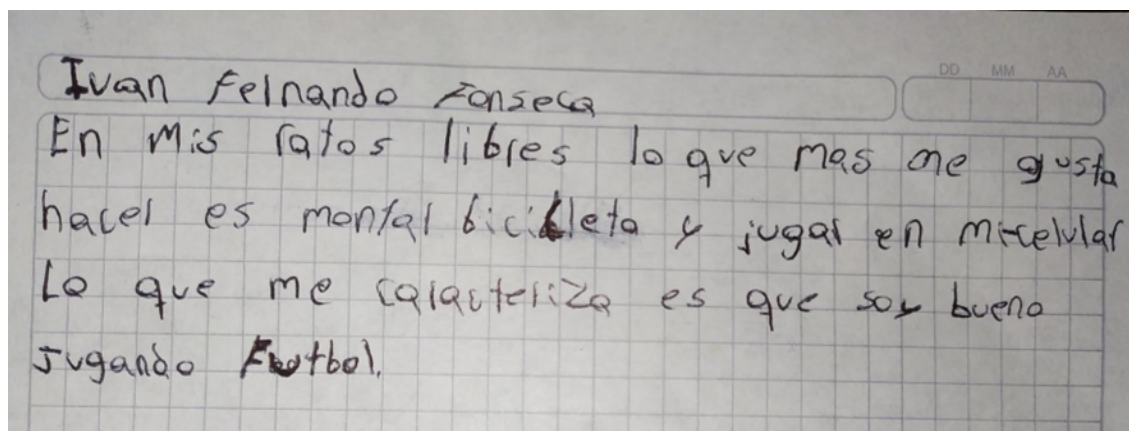 DD MM AA
Ivan Fernando Fonseca
En Mis ratos libres lo que mas me gusta
hacer es montar bicicleta y jugar en mi celular
Lo que me caracteriza es que soy bueno
Jugando Futbol.